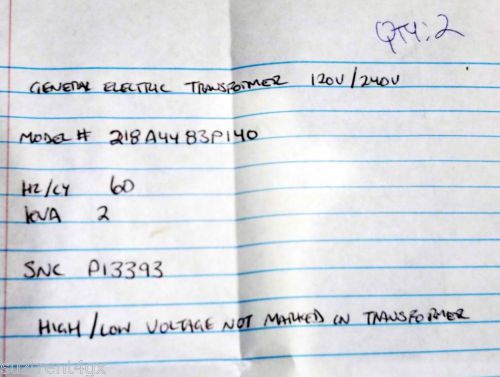 QTY: 2
GENERAL ELECTRIC TRANSFORMER 120V/240V
MODEL# 218A4483P140
HZ/CY 60
KVA 2
SNC P13393
HIGH/LOW VOLTAGE NOT MARKED ON TRANSFORMER